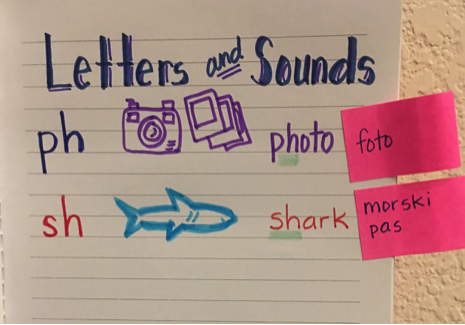 Letters and Sounds
ph photo foto
sh shark morski
pas